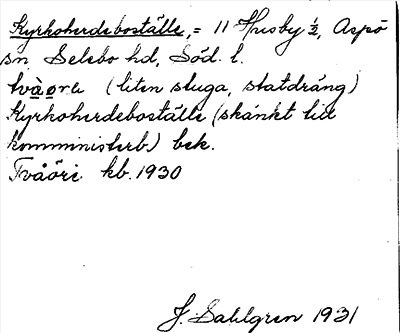 Kyrkoherdeboställe, = 11 Husby ½, Aspö
sn Selebo hd, Söd. l.
tvåöra (liten stuga, statdräng)
Kyrkoherdeboställe (skänkt till
komministerb) bek.
Tvåöri kb. 1930
J. Sahlgren 1931